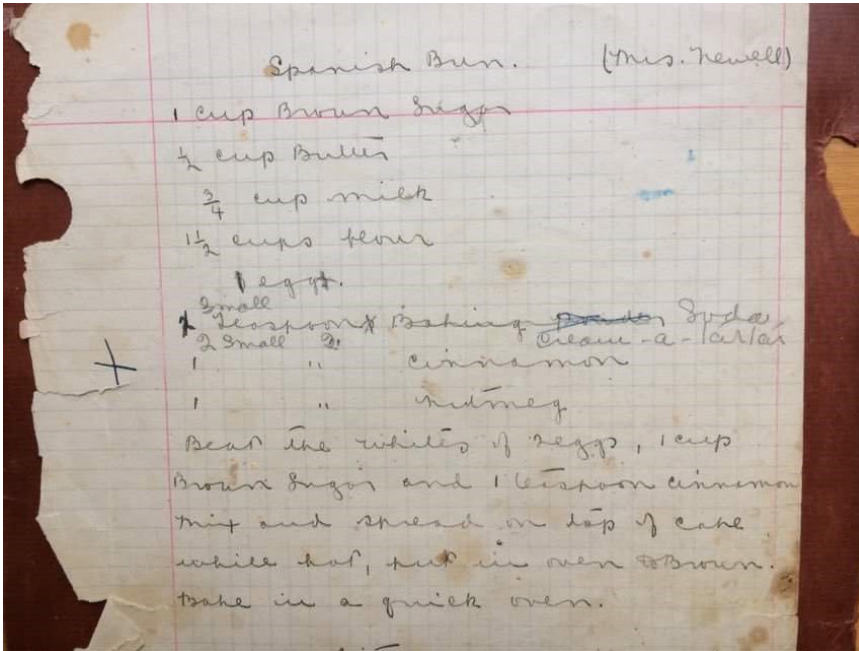 Spanish Bun. (Mrs. Newell)
1 cup Brown Sugar
½ cup Butter
¾ cup milk
1½ cups flour
1 egg.
small
1 Teaspoon Baking Soda
2 small " Cream-a-Tartar
1 " cinnamon
1 " nutmeg
Beat the whites of 2 eggs, 1 cup
Brown Sugar and 1 teaspoon cinnamon
mix and spread on top of cake
while hot, put in oven to Brown.
Bake in a quick oven.